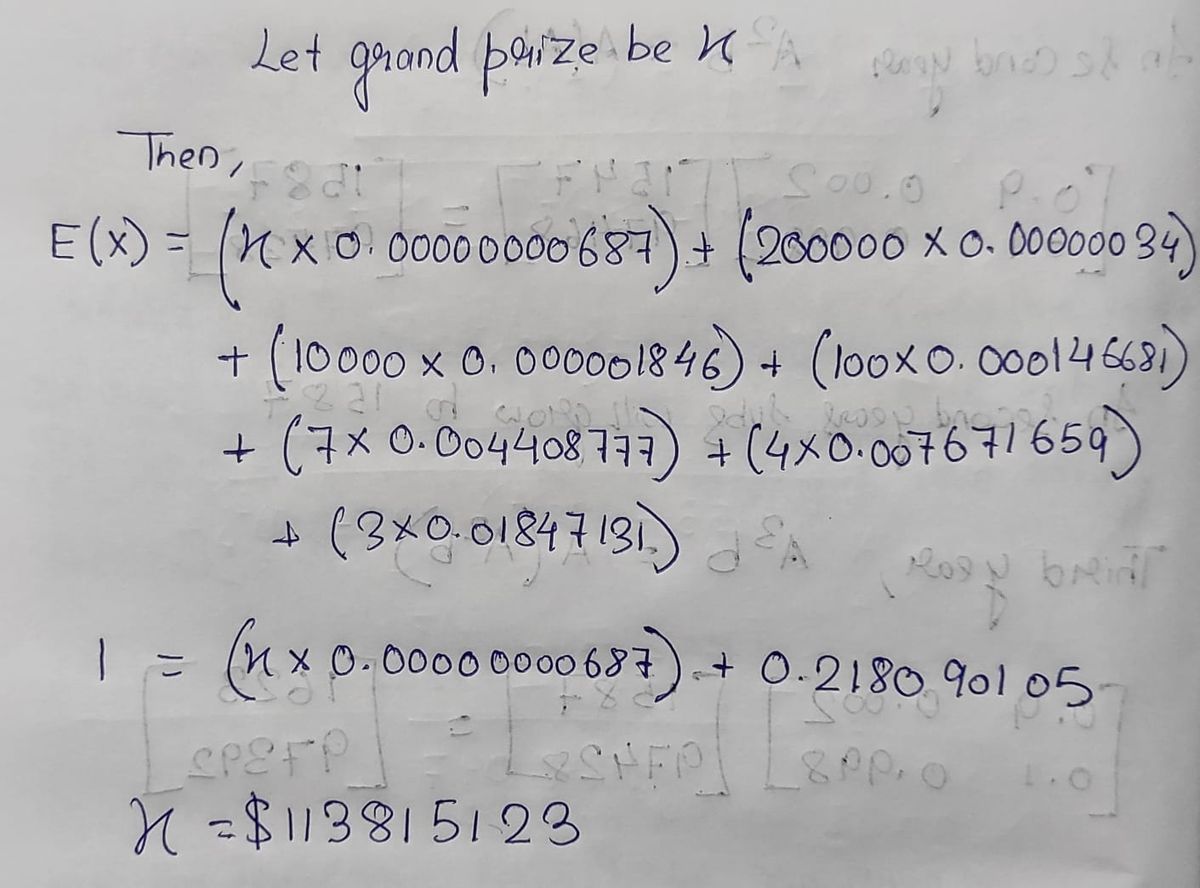 Let grand prize be x
Then,
E(x) = (x × 0.00000000687) + (200000 × 0.00000034)
+ (10000 × 0.000001846) + (100×0.000146681)
+ (7× 0.004408777) + (4×0.007671659)
+ (3×0.01847131)
1 = (x × 0.00000000687) + 0.218090105
x = $113815123